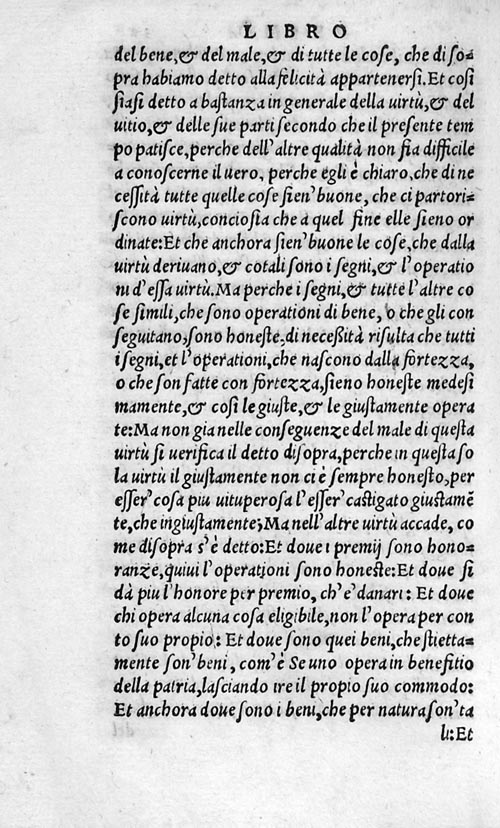 LIBRO
del bene,& del male,& di tutte le cose, che di so=
pra habiamo detto alla felicità appartenersi.Et così
siasi detto a bastanza in generale della virtù,& del
uitio,& delle sue parti secondo che il presente tem
po patisce,perche dell'altre qualità non fia difficile
a conoscerne il uero, perche egli è chiaro,che di ne
cessità tutte quelle cose sien'buone, che ci partori=
scono virtù,conciosia che a quel fine elle sieno or
dinate:Et che anchora sien'buone le cose,che dalla
uirtù deriuano,& cotali sono i segni,& l'operatio
ni d'essa uirtù.Ma perche i segni,& tutte l'altre co
se simili,che sono operationi di bene, o che gli con
seguitano,sono honeste,di necessità risulta che tutti
i segni,et l'operationi,che nascono dalla fortezza,
o che son fatte con fortezza,sieno honeste medesi
mamente,& così le giuste,& le giustamente opera
te:Ma non gia nelle conseguenze del male di questa
uirtù si uerifica il detto disopra,perche in questa so
la uirtù il giustamente non ci è sempre honesto,per
esser'cosa piu uituperosa l'esser'castigato giustamẽ
te,che ingiustamente;Ma nell'altre uirtù accade, co
me disopra s'è detto:Et doue i premij sono hono=
ranze,quiui l'operationi sono honeste:Et doue si
dà piu l'honore per premio, ch'e'danari: Et doue
chi opera alcuna cosa eligibile,non l'opera per con
to suo propio: Et doue sono quei beni,che stietta=
mente son'beni, com'è Se uno opera in benefitio
della patria,lasciando ire il propio suo commodo:
Et anchora doue sono i beni,che per natura son'ta
li:Et